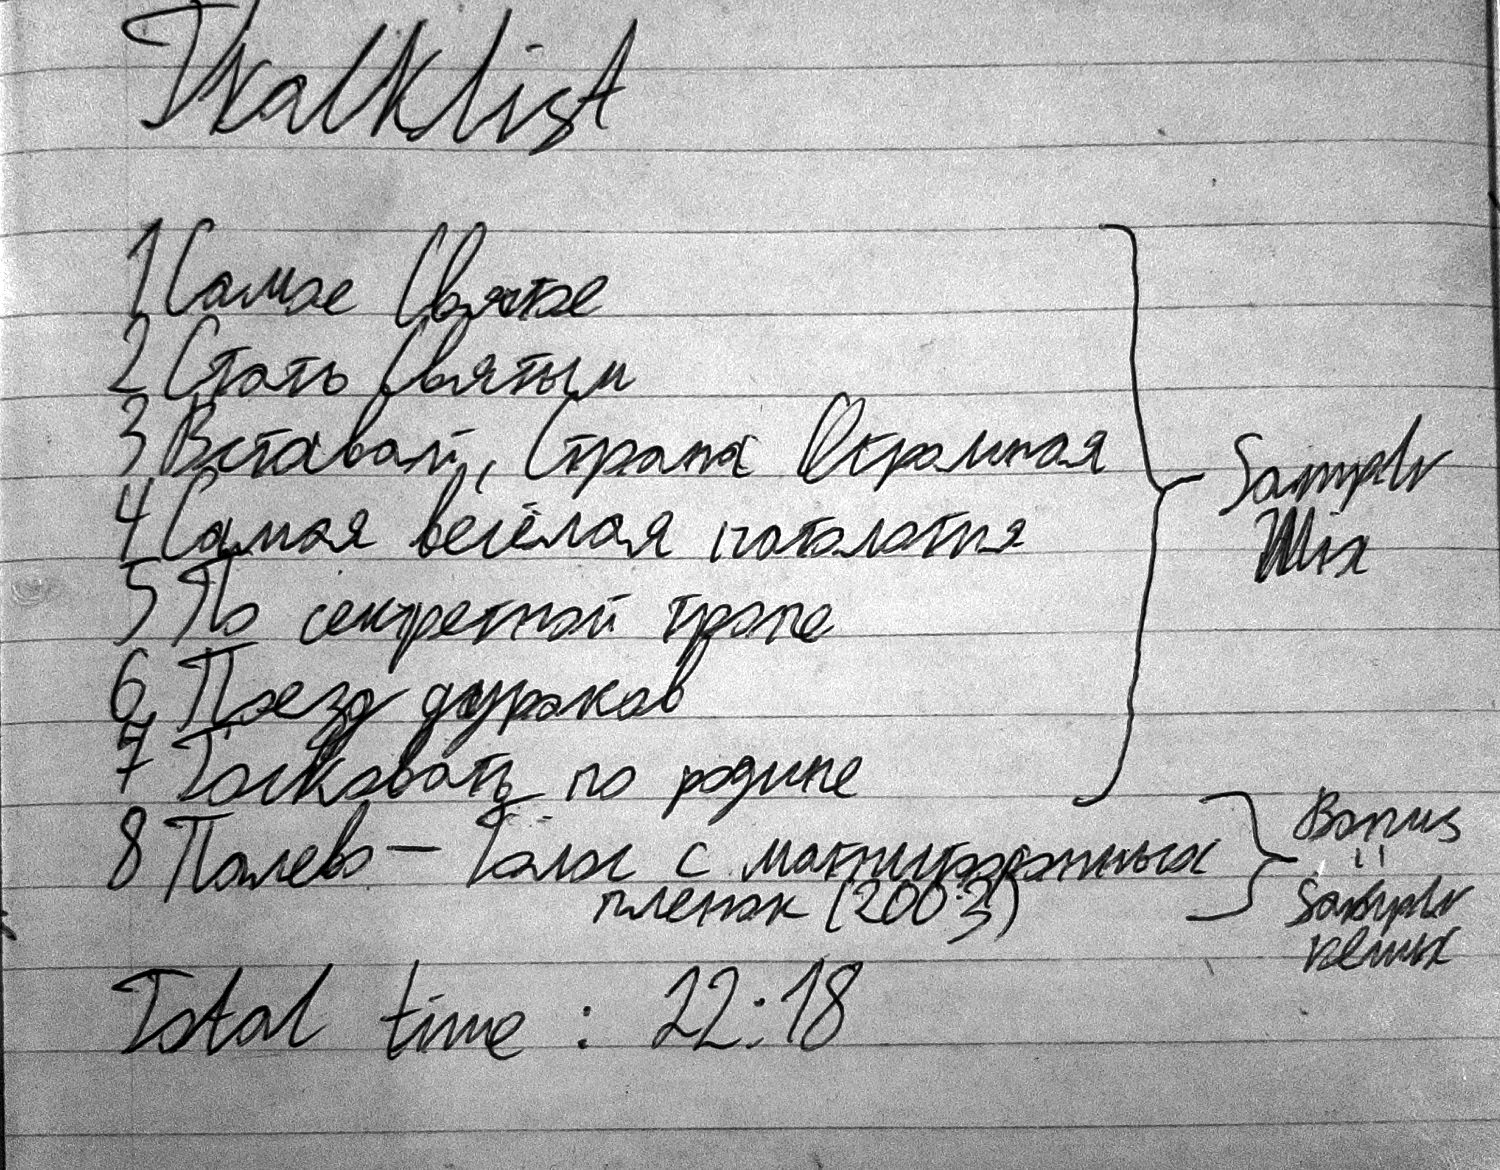 Tracklist
1 Самое Святое
2 Стать Святым
3 Вставай, Страна Огромная
4 Самая весёлая патология
5 По секретной тропе
6 Поезд дураков
7 Тосковать по родине
8 Палево — Голос с магнитофонных
плёнок (2003)
Sampler
Mix
Bonus
Sampler
remix
Total time : 22:18